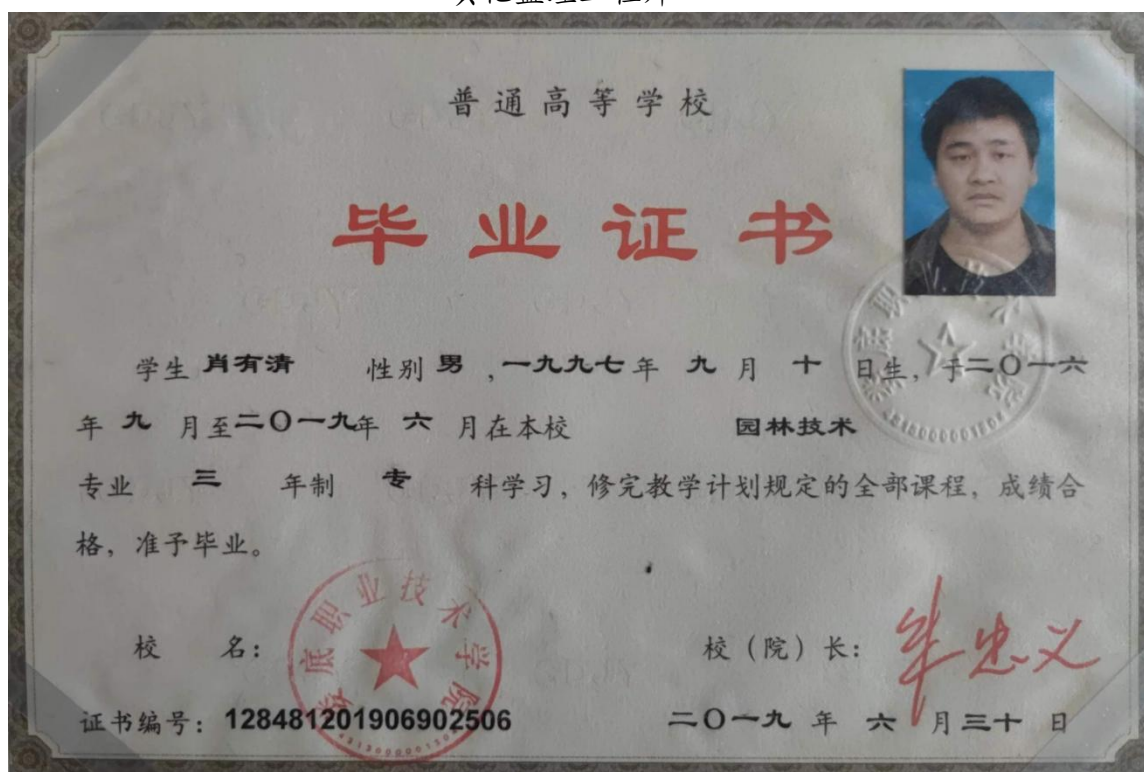 普通高等学校
毕业证书
学生 肖有清 性别 男 ,一九九七年 九 月 十 日生,于二〇一六
年 九 月至二〇一九年 六 月在本校 园林技术
专业 三 年制 专 科学习,修完教学计划规定的全部课程,成绩合
格,准予毕业。
娄底职业技术学院
校 名: 校(院)长:
证书编号:128481201906902506 二〇一九 年 六 月三十 日